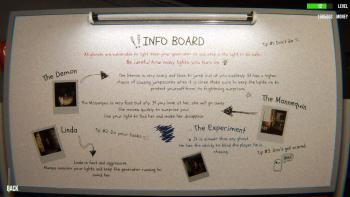 LEVEL
MONEY
INFO BOARD
Tip #1 Don't die
All ghosts are vulnerable to light keep your generator on and stay in the light to be safe.
Be careful how many lights you turn on
The Demon
The Demon is very scary and likes to jump out at you suddenly. It has a higher
chance of causing jumpscares when it is close. Make sure to keep the lights on to
protect yourself from its frightening surprises.
The Mannequin is very fast but shy. If you look at her, she will go away.
She moves quickly to surprise you!
Use your light to find her and make her disappear
The Mannequin
Linda
Tip #2 Do your tasks
The Experiment
It is slower than any ghost.
He has the ability to blind the player he is
chasing.
Tip #3 Don't get scared
Linda is fast and aggressive.
Always monitor your lights and keep the generator running to
avoid her.
BACK